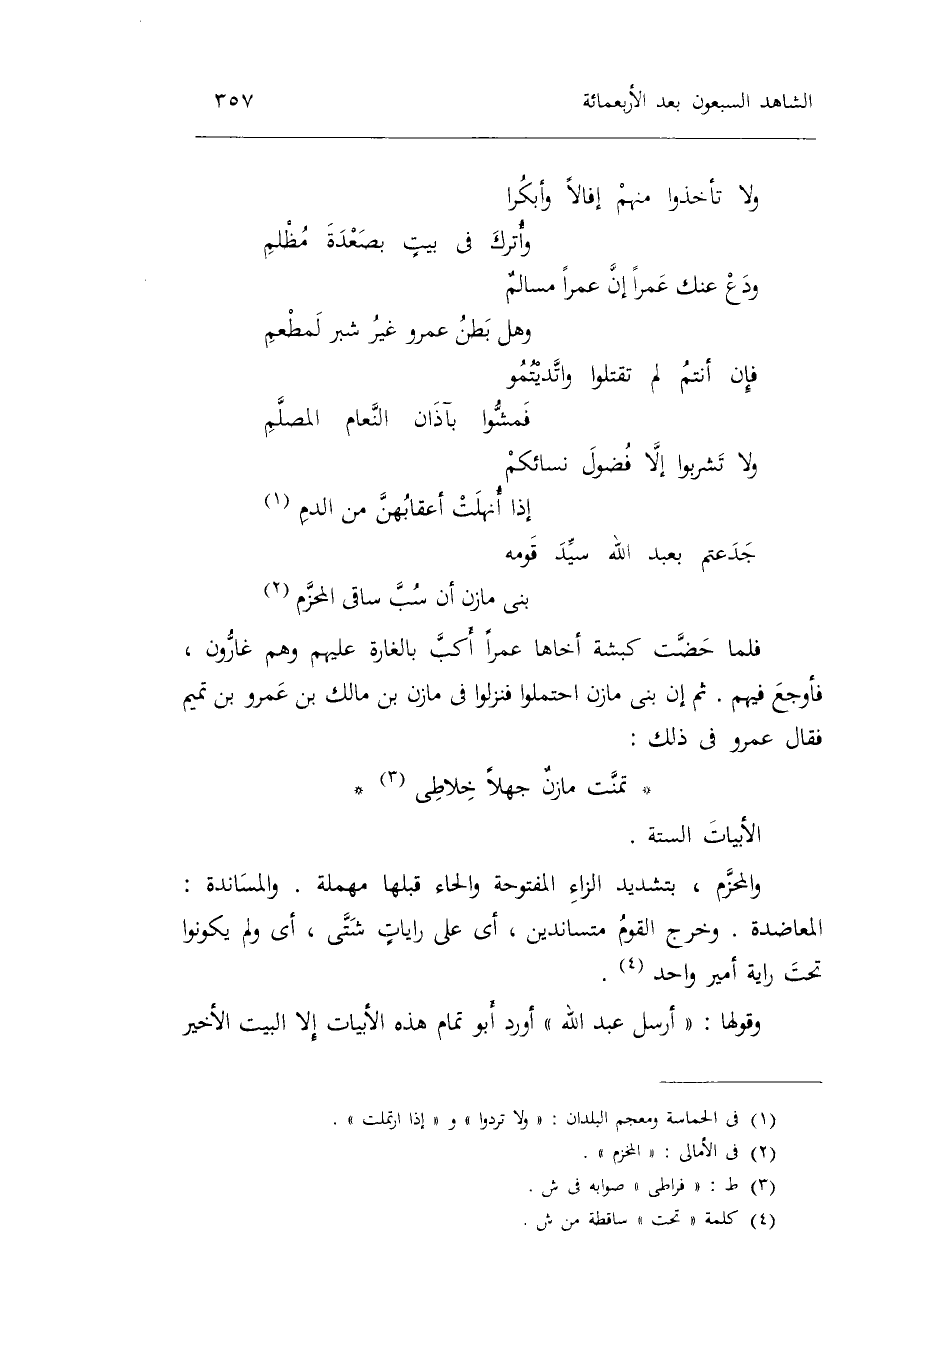 الشاهد السبعون بعد الأربعمائة ٣٥٧
ولا تأخذوا منهمْ إفالاً وأبكُرا
وأُتركَ فى بيتٍ بصَعْدَةَ مُظْلمِ
ودَعْ عنك عَمراً إنَّ عمراً مسالمٌ
وهل بَطنُ عمرو غيرُ شبر لَمطْعمِ
فإِن أنتمُ لم تقتلوا واتَّديْتُمُو
فَمشُّوا بآذَان النَّعام المصلَّمِ
ولا تَشربوا إلَّا فُضولَ نسائكمْ
إذا أُنهلَتْ أعقابُهنَّ من الدمِ (١)
جَدَعتم بعبد الله سيِّدَ قَومه
بنى مازن أن سُبَّ ساقى المحزَّم (٢)
فلما حَضَّت كبشة أخاها عمراً أكبَّ بالغارة عليهم وهم غارُّون ،
فأوجعَ فيهم . ثم إن بنى مازن احتملوا فنزلوا فى مازن بن مالك بن عَمرو بن تميم
فقال عمرو فى ذلك :
* تمنَّت مازنٌ جهلاً خِلاطِى (٣) *
الأبياتَ الستة .
والمحزَّم ، بتشديد الزاءِ المفتوحة والحاء قبلها مهملة . والمسَاندة :
المعاضدة . وخرج القومُ متساندين ، أى على راياتٍ شتَّى ، أى ولم يكونوا
تحتَ راية أمير واحد (٤) .
وقولها : « أرسل عبد الله » أورد أبو تمام هذه الأبيات إلا البيت الأخير
(١) فى الحماسة ومعجم البلدان : « ولا تردوا » و « إذا ارتملت » .
(٢) فى الأمالى : « المخزم » .
(٣) ط : « فراطى » صوابه فى ش .
(٤) كلمة « تحت » ساقطة من ش .